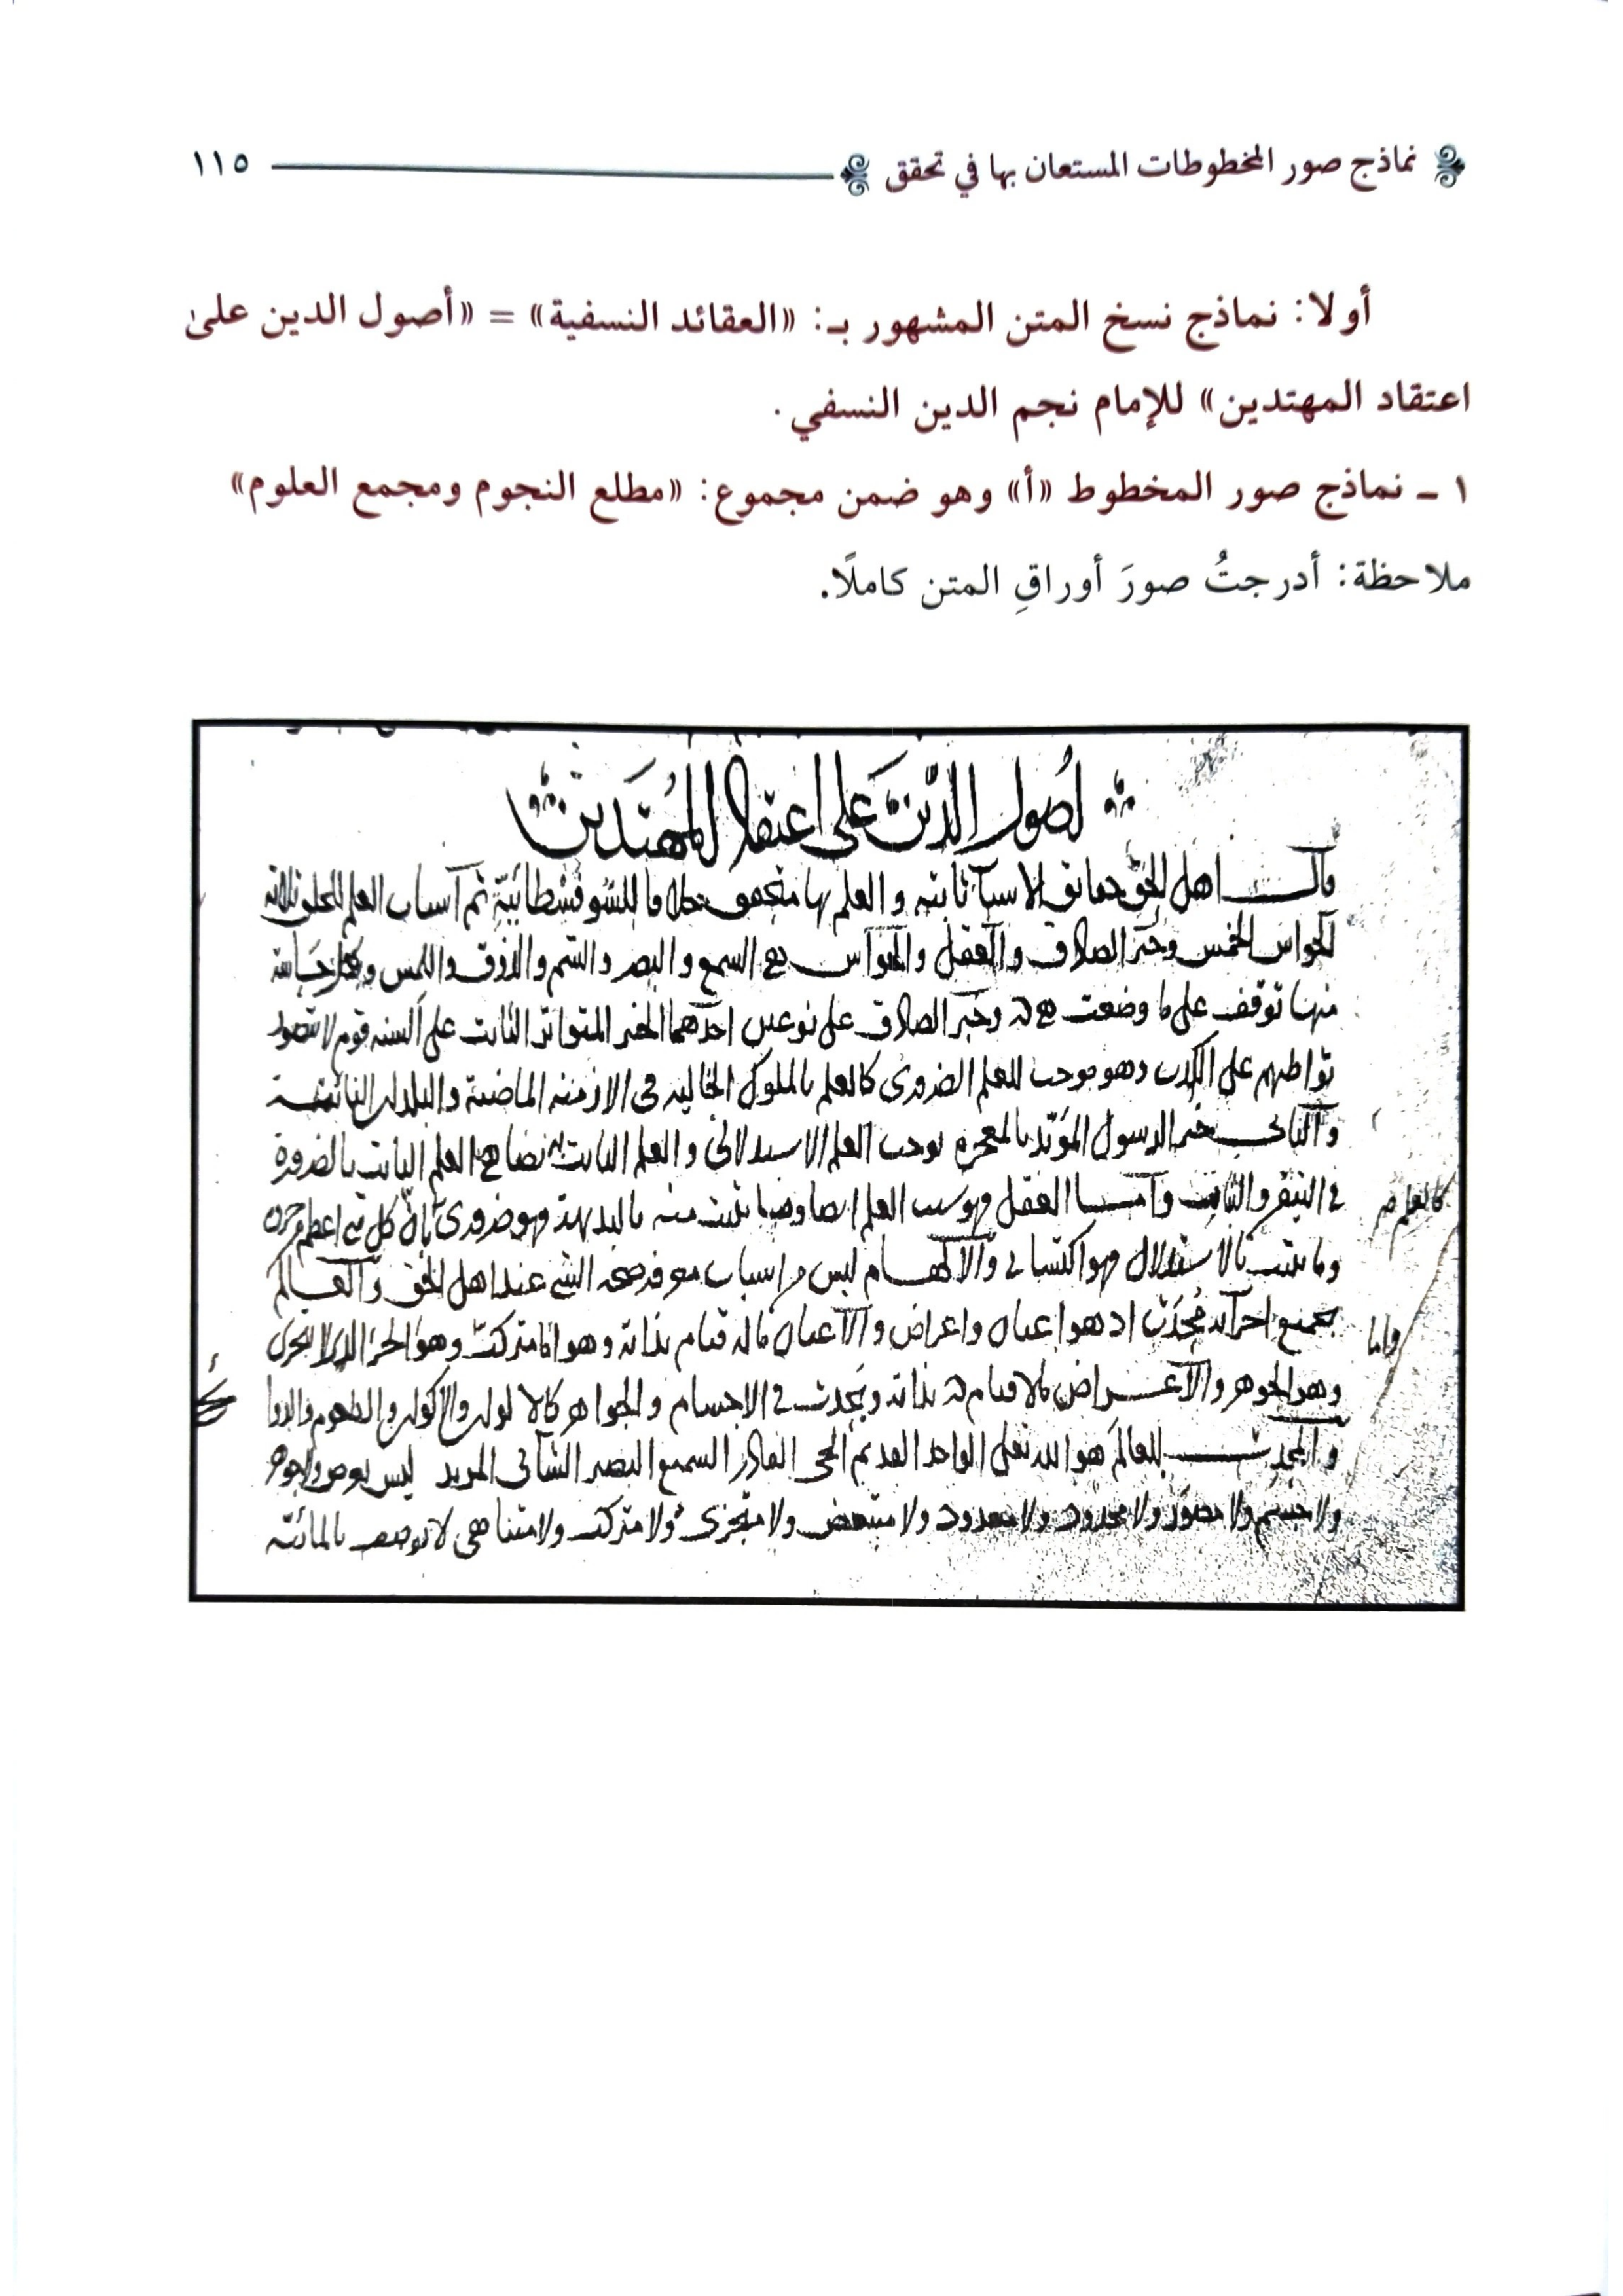 نماذج صور المخطوطات المستعان بها في تحقق ١١٥
أولا: نماذج نسخ المتن المشهور بـ: «العقائد النسفية» = «أصول الدين علىٰ
اعتقاد المهتدين» للإمام نجم الدين النسفي.
١ ـ نماذج صور المخطوط «أ» وهو ضمن مجموع: «مطلع النجوم ومجمع العلوم»
ملاحظة: أدرجتُ صورَ أوراقِ المتن كاملًا.
اصول الدين على اعتقاد المهتدين
قال اهل الحق حقايق الاشيآ ثابته والعلم بها متحقق خلافا للسوفسطائية ثم اسباب العلم للخلق ثلاثه
الحواس الخمس وخبر الصادق والعقل والحواس هي السمع والبصر والشم والذوق واللمس وبكل حاسة
منها توقف على ما وضعت هي له وخبر الصادق على نوعين احدهما الخبر المتواتر الثابت على السنه قوم لا يتصور
تواطيهم على الكذب وهو موجب للعلم الضرورى كالعلم بالملوك الخاليه فى الازمنه الماضية والبلدان النائية
والثاني خبر الرسول المؤيد بالمعجزه يوجب العلم الاستدلالى والعلم الثابت به يضاهى العلم الثابت بالضرورة
في التيقن والثبات وامـا العقل فهو سبب العلم ايضا وما يثبت منه بالبديهة فهو ضرورى بان كل شي اعظم من جزئه
كالعلم
وما يثبت بالاستدلال فهو اكتسابي والالهـام ليس من اسباب معرفه صحه الشي عند اهل الحق والعـالم
بجميع اجزآئه محدث اذ هو اعيان واعراض والاعيان ما له قيام بذاته وهو اما مركب وهو الجزء الذي لا يتجزى
واما
وهو الجوهر والاعـراض ما لا قيام له بذاته ويحدث في الاجسام والجواهر كالالوان والاكوان والطعوم والروا
والمحدث للعالم هو الله تعلى الواحد القديم الحى القادر السميع البصير الشائى المريد ليس بعرض ولا جوهر
ولا جسم ولا مصور ولا محدود ولا معدود ولا متبعض ولا متجزى ولا مركب ولا متناهى لا يوصف بالمائية